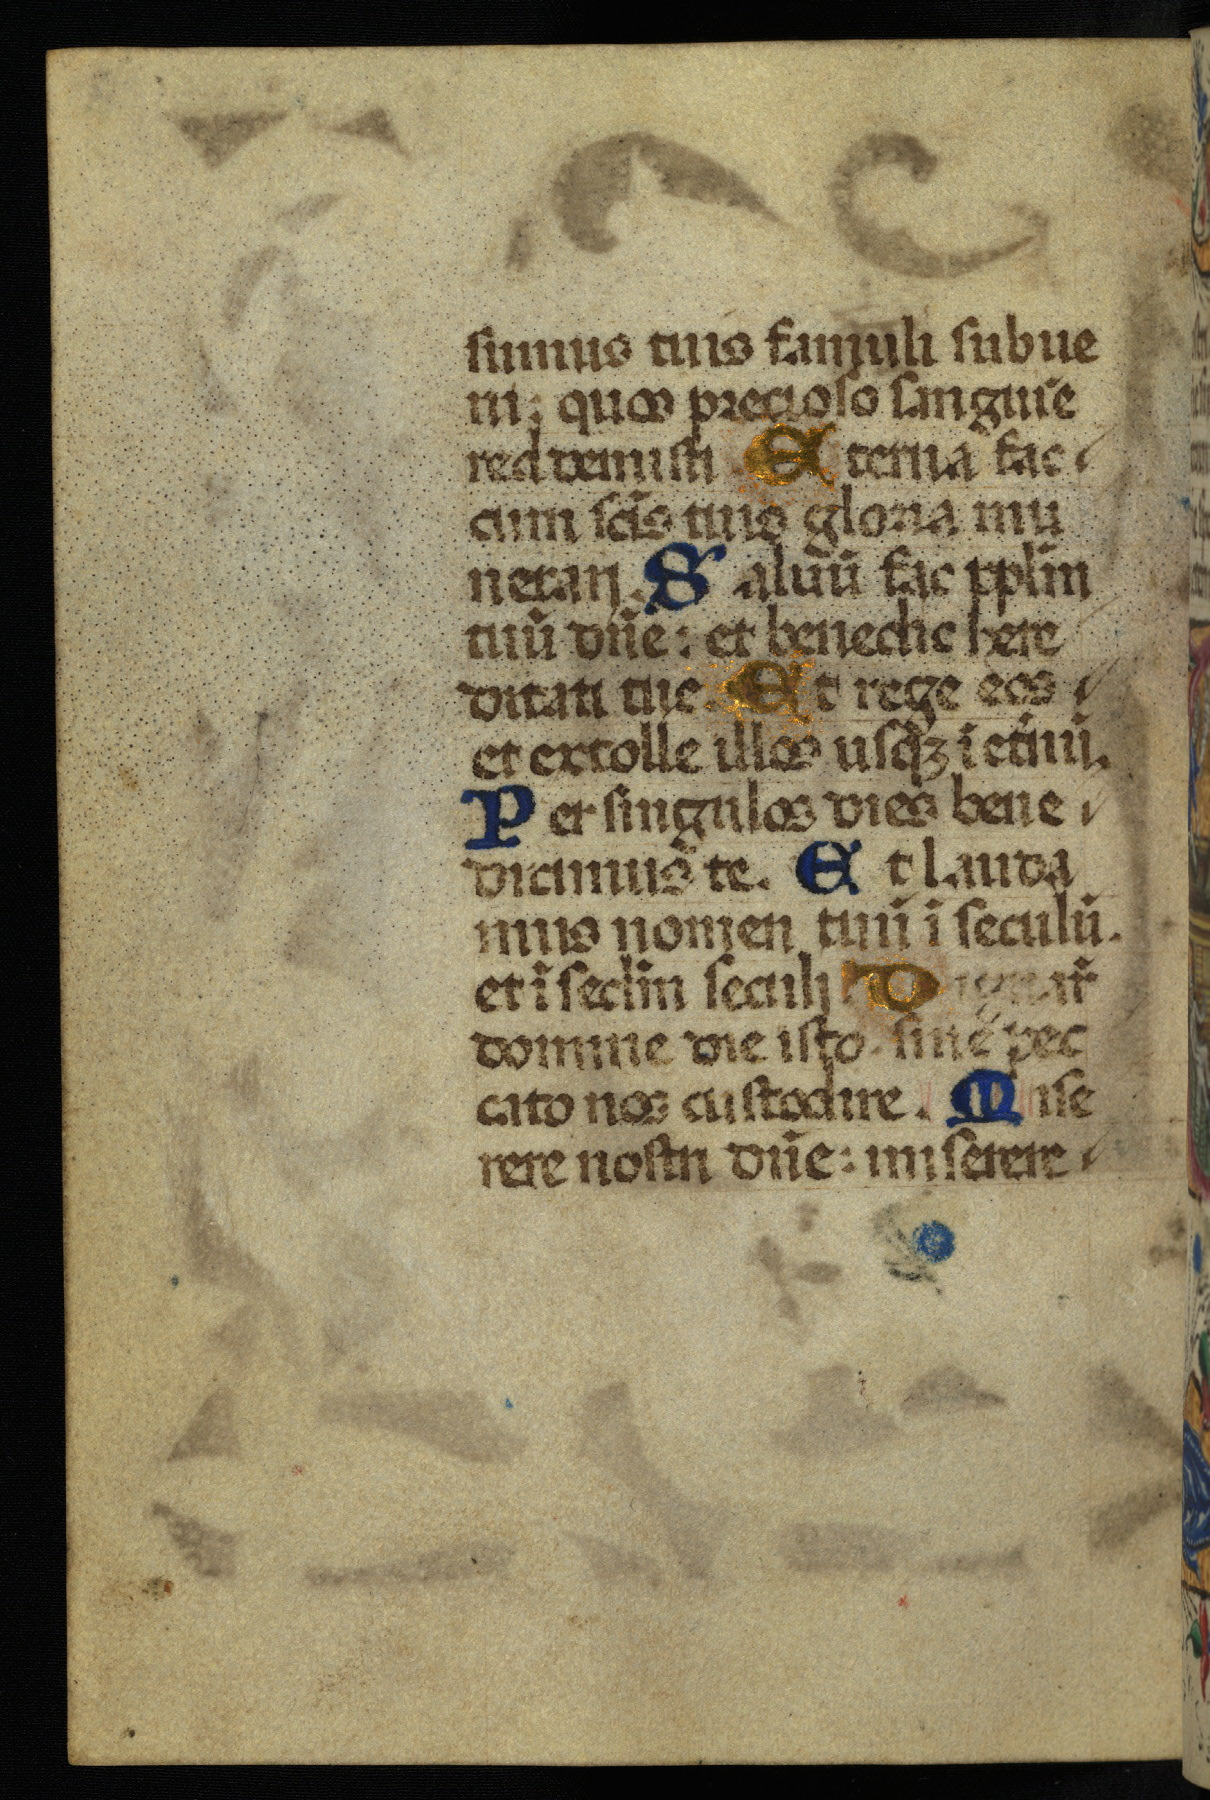 sumus tuis famuli subue
ni: quos precioso sanguīe
redemisti Eterna fac
cum sc̄is tuis gloria mu
nerari. Saluū fac pplm̄
tuū dn̄e: et benedic here
ditati tue. Et rege eos
et extolle illos usqꝫ ī et̄nū.
Per singulos dies bene
dicimus te. Et lauda
mus nomen tuū ī seculū.
et ī seclm̄ seculi Dignar̄
domine die isto. sine pec
cato nos custodire. Mise
rere nostri dn̄e: miserere